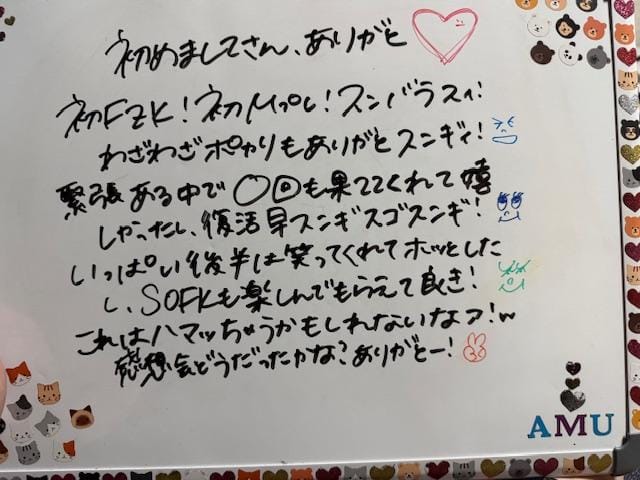 初めましてさん、ありがと
初FZK!初Mプレ!スンバラスィ!
わざわざポカリもありがとスンギィ!
緊張ある中で〇回も果ててくれて嬉
しかったし、復活早スンギスゴスンギ!
いっぱい後半は笑ってくれてホッとした
し、SOFKも楽しんでもらえて良き!
これはハマッちゃうかもしれないなァ!w
感想会どうだったかな?ありがとー!
AMU